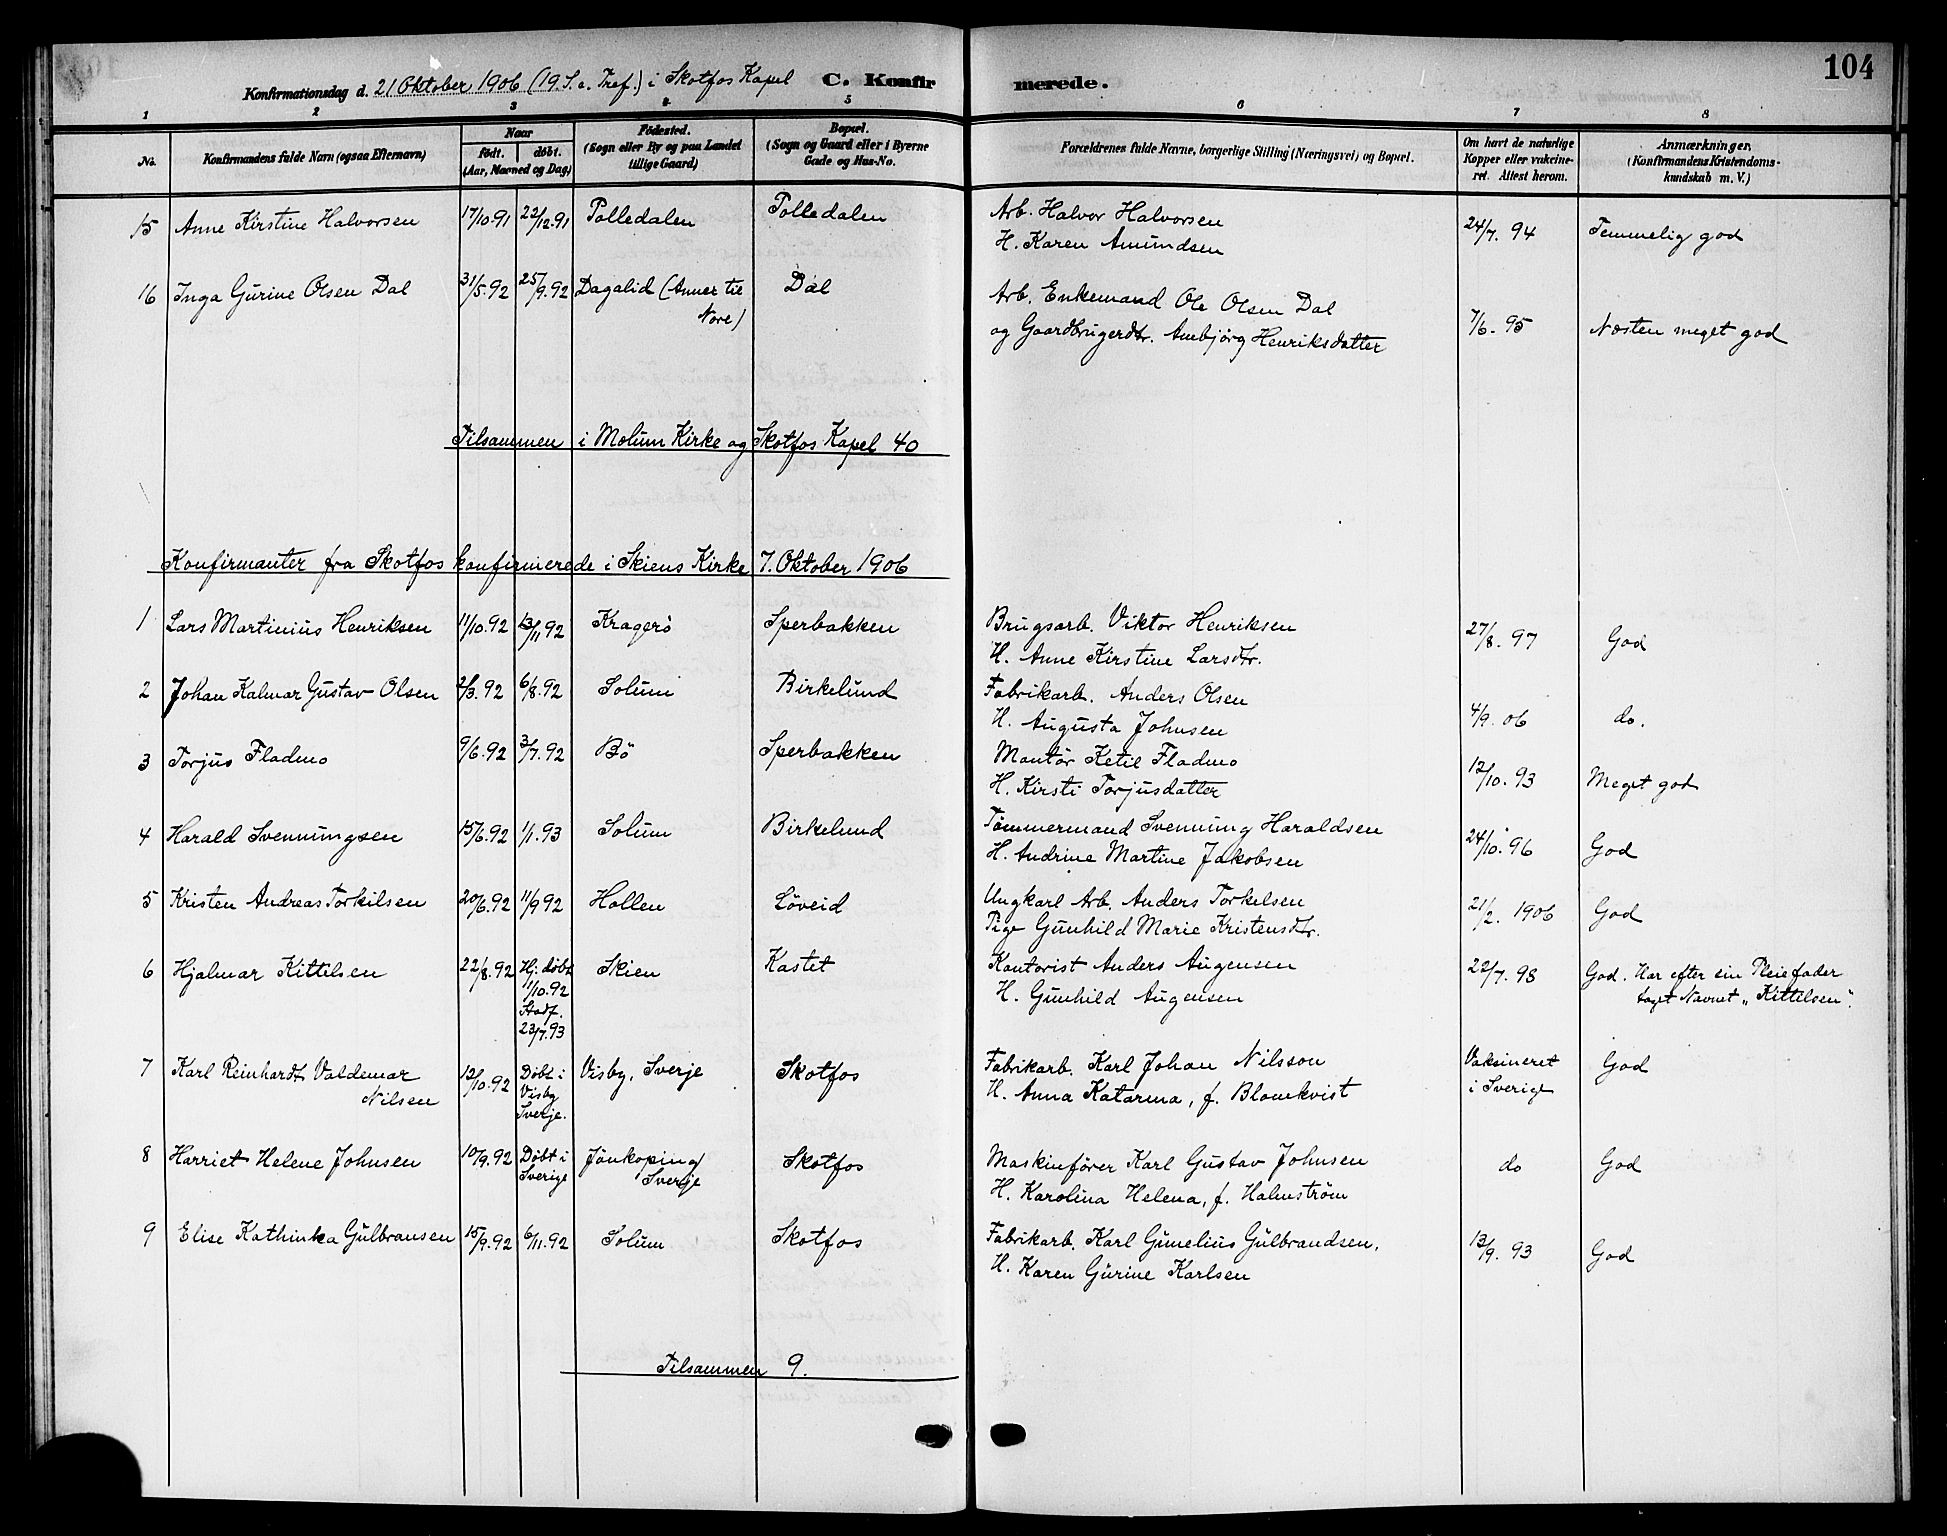 104
Konfirmationsdag d. 21 Oktober 1906 (19. S. e. Tref.) i Skotfos Kapel C. Konfir merede.
1 2 3 4 5 6 7 8
No. Konfirmandens fulde Navn (ogsaa Efternavn) Naar født. døbt. (Aar, Maaned og Dag) Fødested. (Sogn eller By og paa Landet tillige Gaard) Bopæl. (Sogn og Gaard eller i Byerne Gade og Hus-No. Forældrenes fulde Navne, borgerlige Stilling (Næringsvei) og Bopæl. Om havt de naturlige Kopper eller vakcineret. Attest herom. Anmærkninger. (Konfirmandens Kristendomskundskab m. V.)
15 Anne Kirstine Halvorsen 17/10.91 22/12.91 Polledalen Polledalen Arb. Halvor Halvorsen 24/7. 94 Temmelig god
H. Karen Amundsen
16 Inga Gurine Olsen Dal 31/5.92 25/9.92 Dagalid (Annex til Dal Arb. Enkemand Ole Olsen Dal 7/6. 95 Næsten meget god
Nore) og Gaardbrugerdtr. Ambjørg Henriksdatter
Tilsammen i Melum Kirke og Skotfos Kapel 40
Konfirmanter fra Skotfos konfirmerede i Skiens Kirke 7. Oktober 1906
1 Lars Martinius Henriksen 11/10.92 13/11 92 Kragerö Sperbakken Brugsarb. Viktor Henriksen 27/8. 97 God
H. Anne Kirstine Larsdtr.
2 Johan Kalmar Gustav Olsen 2/3.92 6/8.92 Solum Birkelund Fabrikarb. Anders Olsen 4/9. 06 do.
H. Augusta Johnsen
3 Torjus Fladmo 9/6.92 3/7.92 Bö Sperbakken Montör Ketil Fladmo 12/10. 93 Meget god
H. Kirsti Torjusdatter
4 Harald Svennungsen 15/6.92 1/1.93 Solum Birkelund Tömmermand Svennung Haraldsen 24/10. 96 God
H. Andrine Martine Jakobsen
5 Kristen Andreas Torkilsen 20/6.92 11/9 92 Hollen Löveid Ungkarl Arb. Anders Torkelsen 21/2. 1906 God
Pige Gunhild Marie Kristensdtr.
6 Hjalmar Kittilsen 22/8.92 Hj. döbt Skien Kastet Kontorist Anders Augensen 22/7. 98 God. Har efter sin Pleiefader
1/10.92 H. Gunhild Augensen taget Navnet "Kittelsen".
Stadf.
23/7.93
7 Karl Reinhardt Valdemar 12/10.92 Döbt i Visby, Sverje Skotfos Fabrikarb. Karl Johan Nilsson Vaksineret God
Nilsen Visby H. Anna Katarina, f. Blomkvist i Sverige
Sverje.
8 Harriet Helene Johnsen 10/9.92 Döbt i Jönkoping Skotfos Maskinförer Karl Gustav Johnsen do God
Sverige Sverje H. Karolina Helena, f. Halmström
9 Elise Kathinka Gulbransen 15/9.92 6/11.92 Solum Skotfos Fabrikarb. Karl Gunelius Gulbrandsen, 13/9. 93 God
H. Karen Gurine Karlsen
Tilsammen 9.